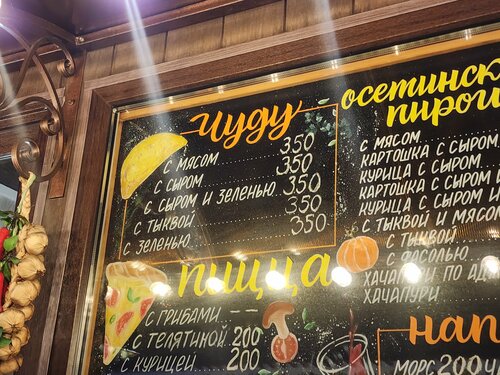 Чуду
с мясом 350
с сыром 350
с сыром и зеленью 350
с тыквой 350
с зеленью 350
пицца
с грибами
с телятиной 200
с курицей 200
осетинск
пироги
с мясом
картошка с сыром
курица с сыром
картошка с сыром и
курица с сыром и
с тыквой и мясом
с тыквой
с фасолью
хачапури по ад
хачапури
нап
морс 200